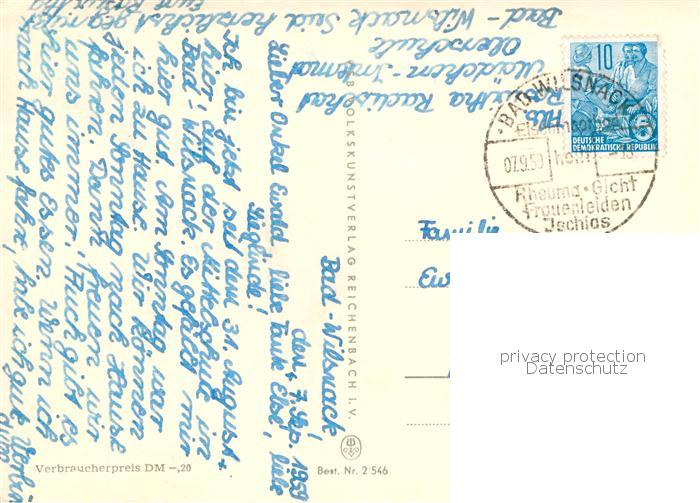 Bad-Wilsnack,
den 7. Sep. 1959
Lieber Onkel Ewald, liebe Tante Else, liebe
Sieglinde!
Ich bin jetzt seit dem 31. August
hier auf der Mittelschule in
Bad-Wilsnack. Es gefällt mir
hier gut. Am Sonntag war
ich zu Hause. Wir können
jeden Sonntag nach Hause
fahren. Darauf freuen wir
uns immer. Auch gibt es
hier gutes Essen. Wenn ich
nach Hause fahre, habe ich gute Verbin
Seid herzlichst gegrüßt
Eure Roswitha
Abs.
Radischat
Mädchen-Internat
Oberschule
Bad-Wilsnack
BAD WILSNACK
07.9.59
Rheuma · Gicht
Frauenleiden
Ischias
10
DEUTSCHE
DEMOKRATISCHE REPUBLIK
VOLKSKUNSTVERLAG REICHENBACH I. V.
Familie
privacy protection
Datenschutz
Verbraucherpreis DM -,20
Best. Nr. 2 546